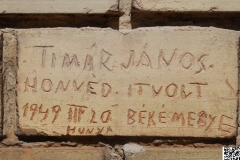 TIMÁR JÁNOS.
HONVÉD. ITVOLT
1949 III 20 BÉKÉMEGYE
HUNYA